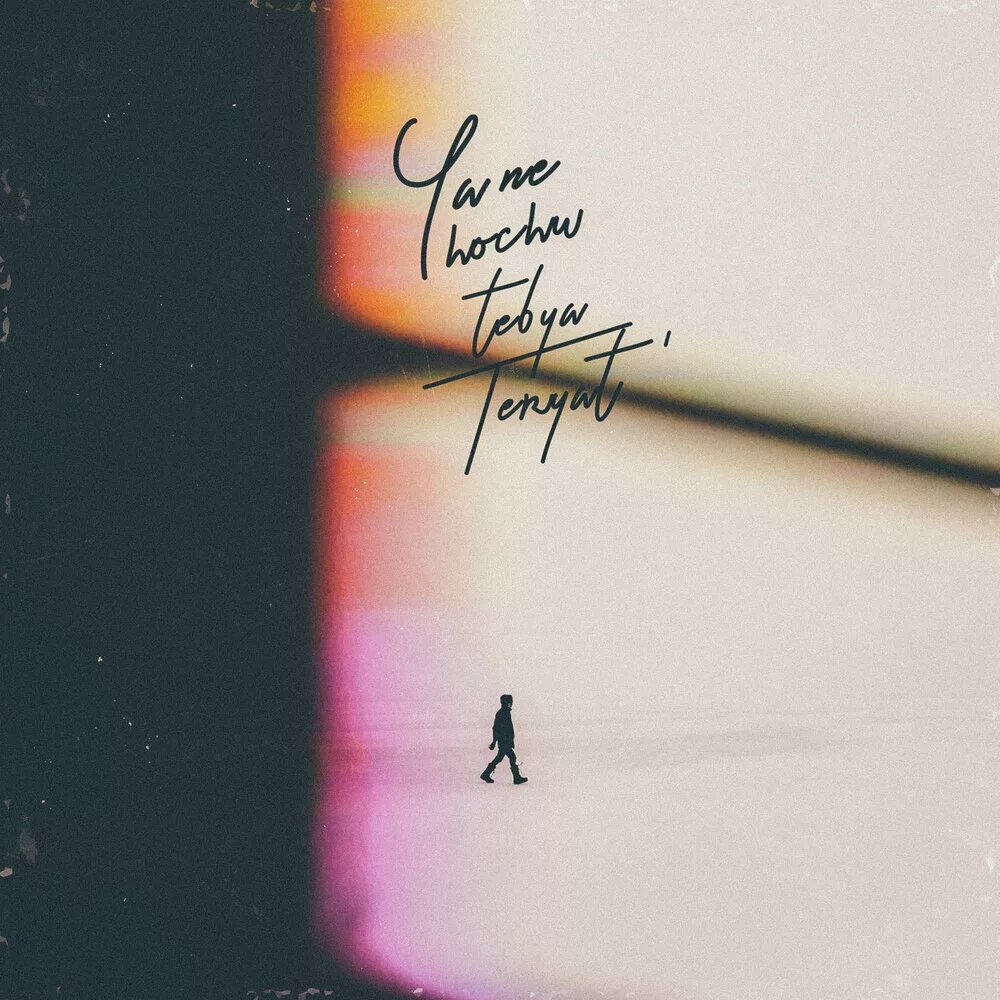 Ya ne
hochu
tebya
Teryat'